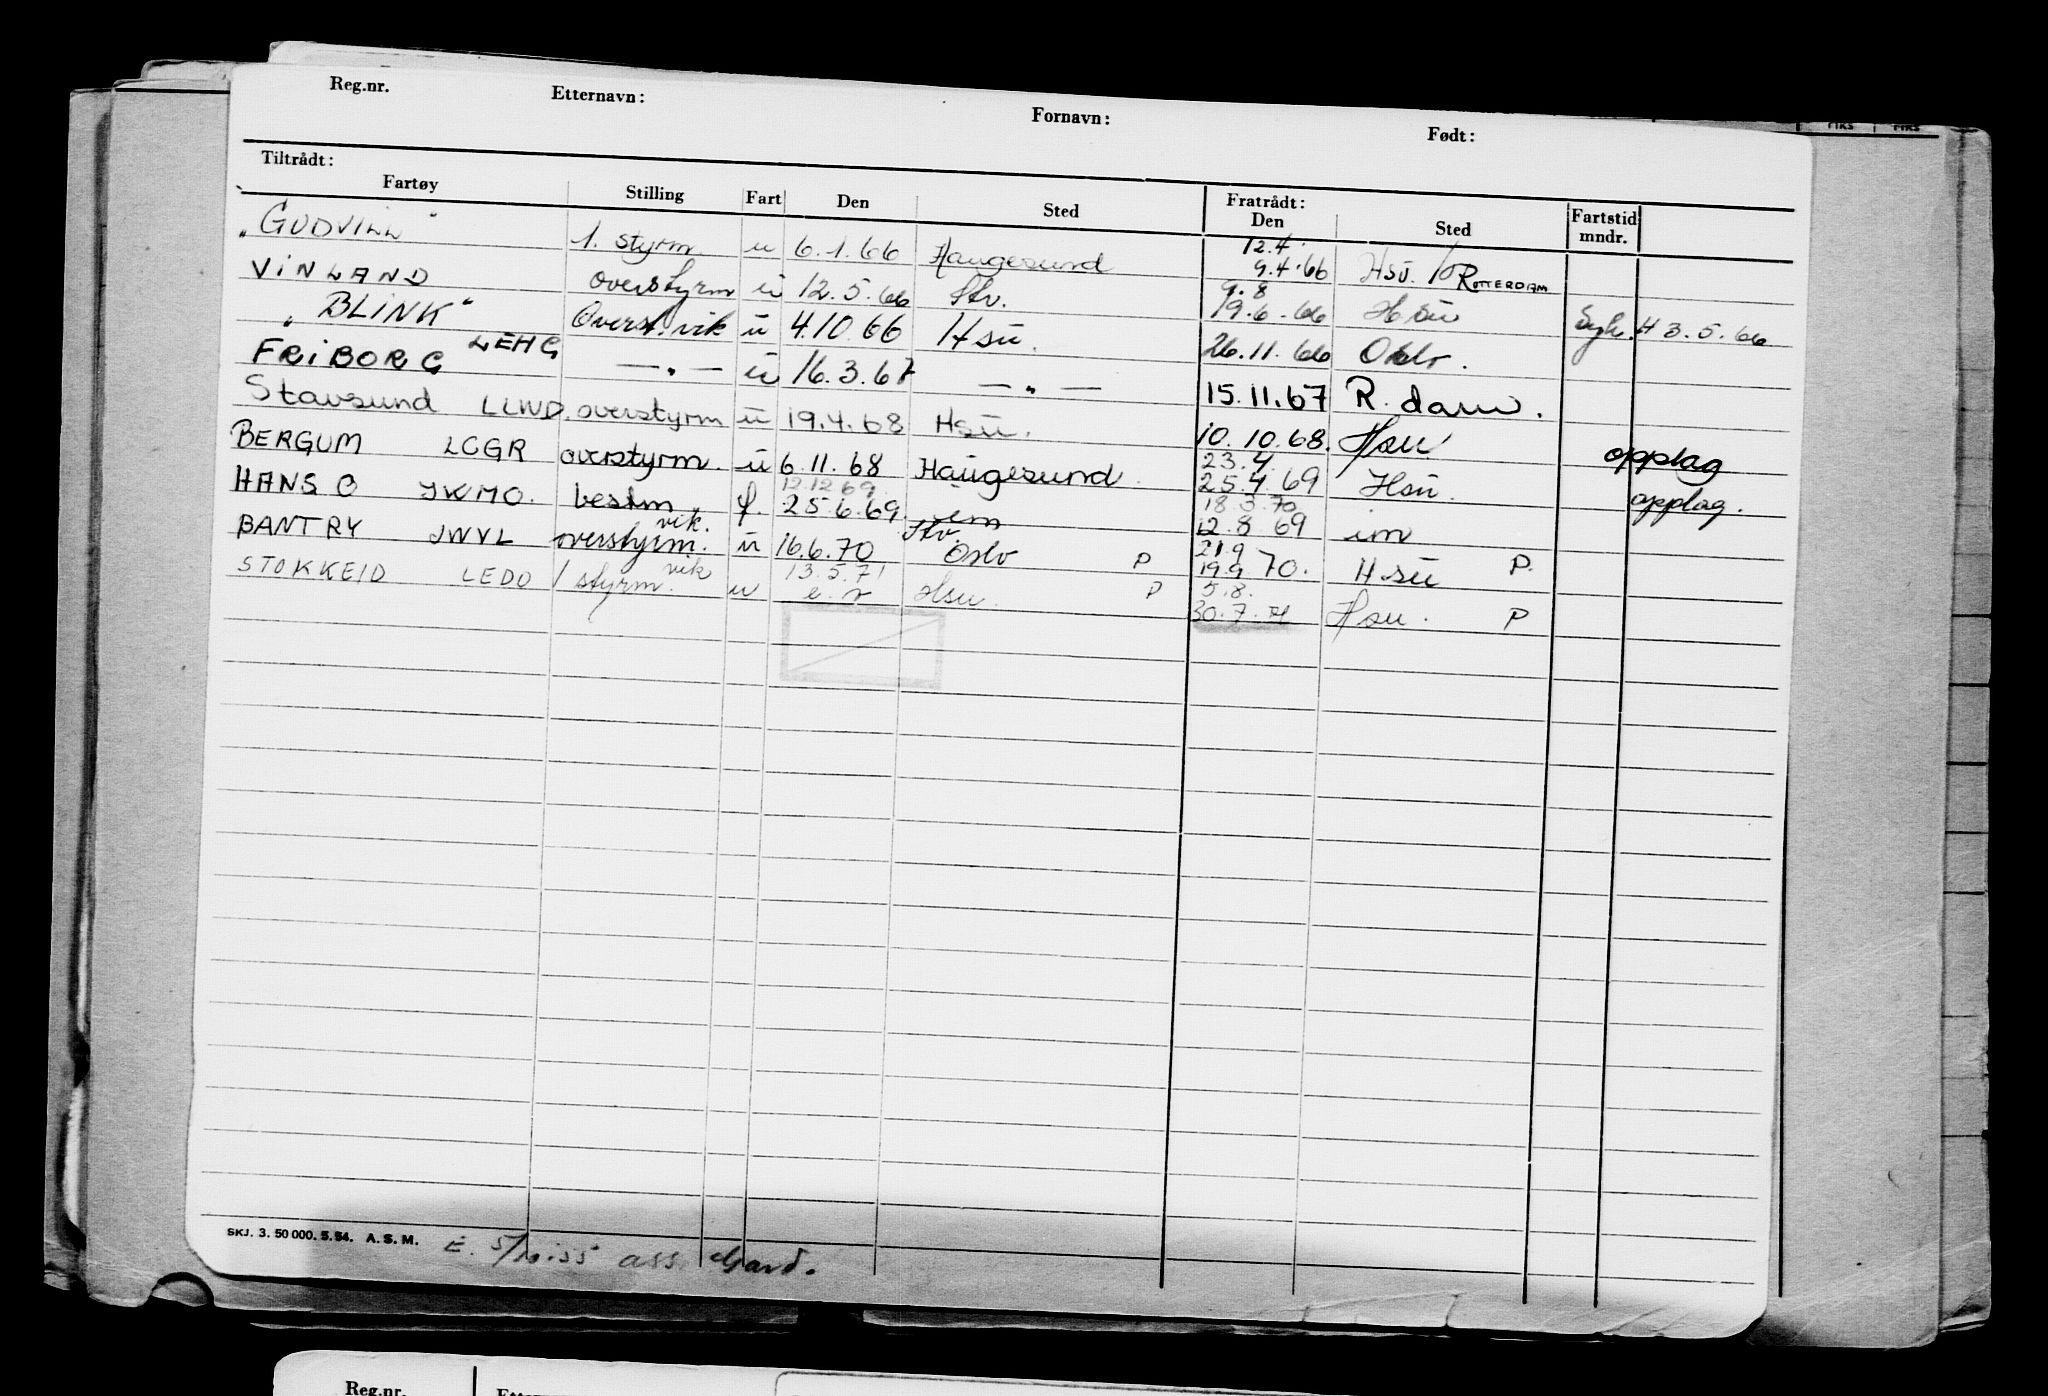 Reg.nr. Etternavn: Fornavn: Født:
Tiltrådt: Fratrådt:
Fartøy Stilling Fart Den Sted Den Sted Fartstid mndr.
„GUDVILL" 1. styrm u 6.1.66 Haugesund 12.4. 9.4.66 Hsu. / ROTTERDAM
VINLAND overstyrm u 12.5.66 Stv. 9.8 19.6.66 Hsu Syk. H 3.5.66
„BLINK" Overst. vik u 4.10.66 Hsu. 26.11.66 Oslo.
FRIBORG LEHG — „ — u 16.3.67 — „ — 15.11.67 R.dam.
Stavsund LLWD. overstyrm u 19.4.68 Hsu. 10.10.68. Hsu opplag
BERGUM LCGR overstyrm. u 6.11.68 Haugesund. 23.4 25.4.69 Hsu. opplag.
HANS O JKMO. bestm. f. 12.12.69. 25.6.69. im 18.3.70 12.8.69 im
BANTRY JWVL overstyrm. vik. u 16.6.70 Stv. Oslo P 21.9 19.9.70. Hsu P.
STOKKEID LEDO 1 styrm. vik u 13.5.71 Hsu. P 5.8. 30.7.71 Hsu. P
SKJ. 3. 50 000. 5. 54. A. S. M.
ass. Gard.
Reg.nr.